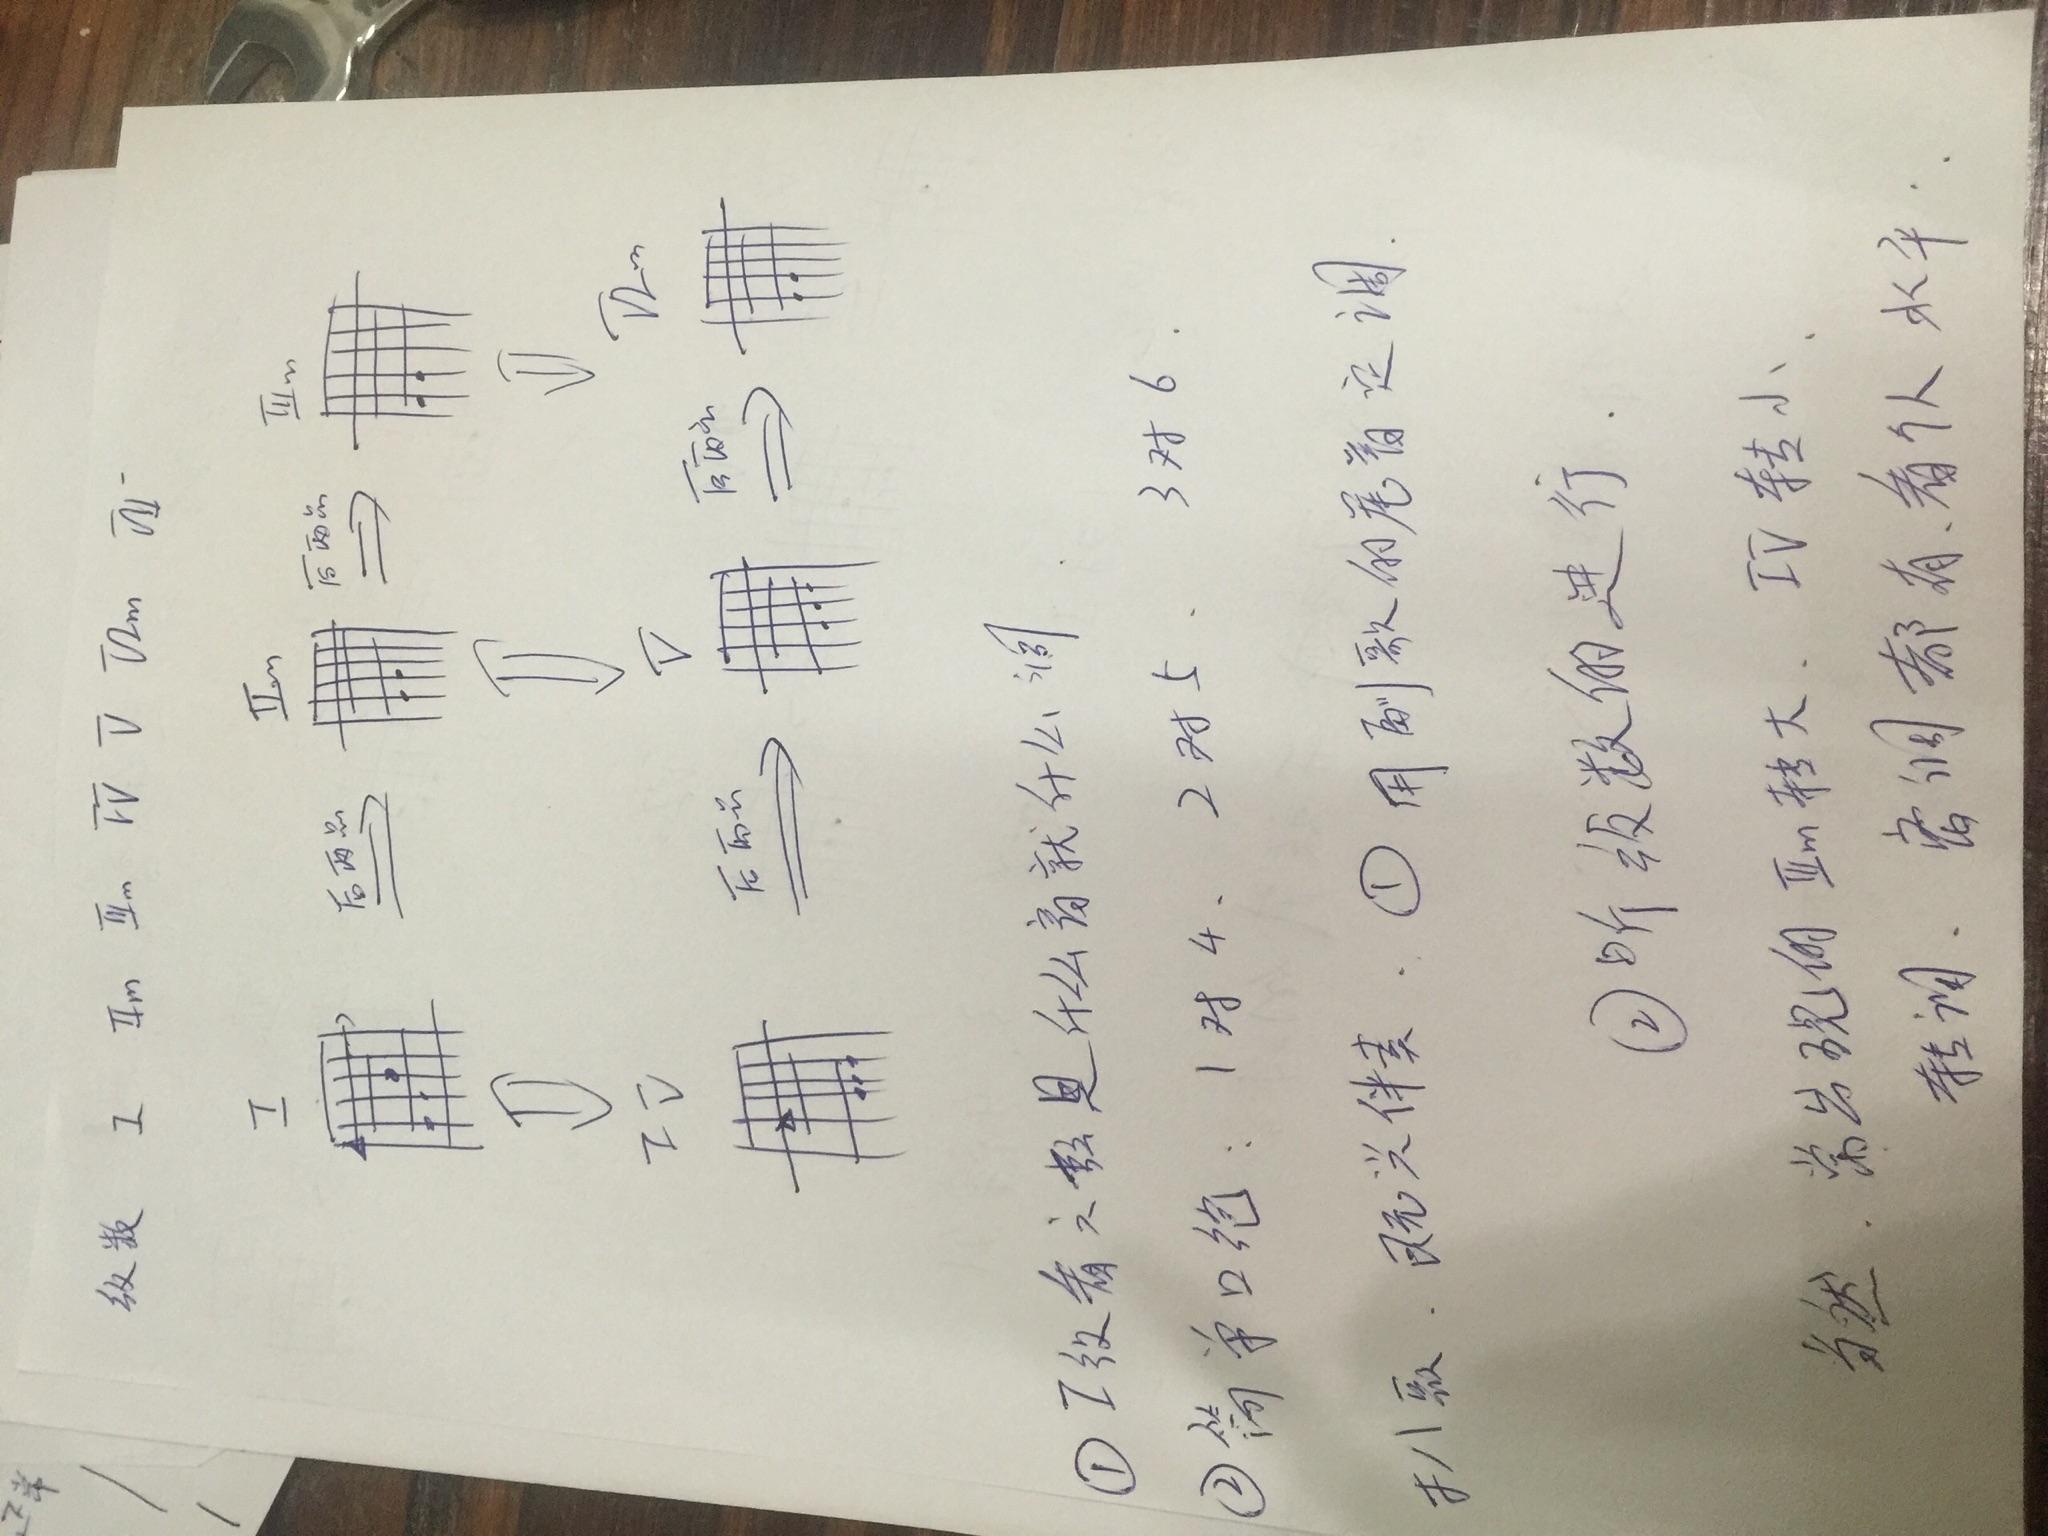 级数 I IIm IIIm IV V VIm VII-
I 后两品 IIm 后两品 IIIm
IV 后两品 V 后两品 VIm
① I级看六弦是什么音就什么调.
② 简单口绝: 1对4. 2对5. 3对6.
扒歌. 既兴伴奏. ① 用副歌的尾音定调.
② 听级数的进行.
自然. 常出现的 IIIm转大. IV转小.
转调. 离调都有. 看个人水平..